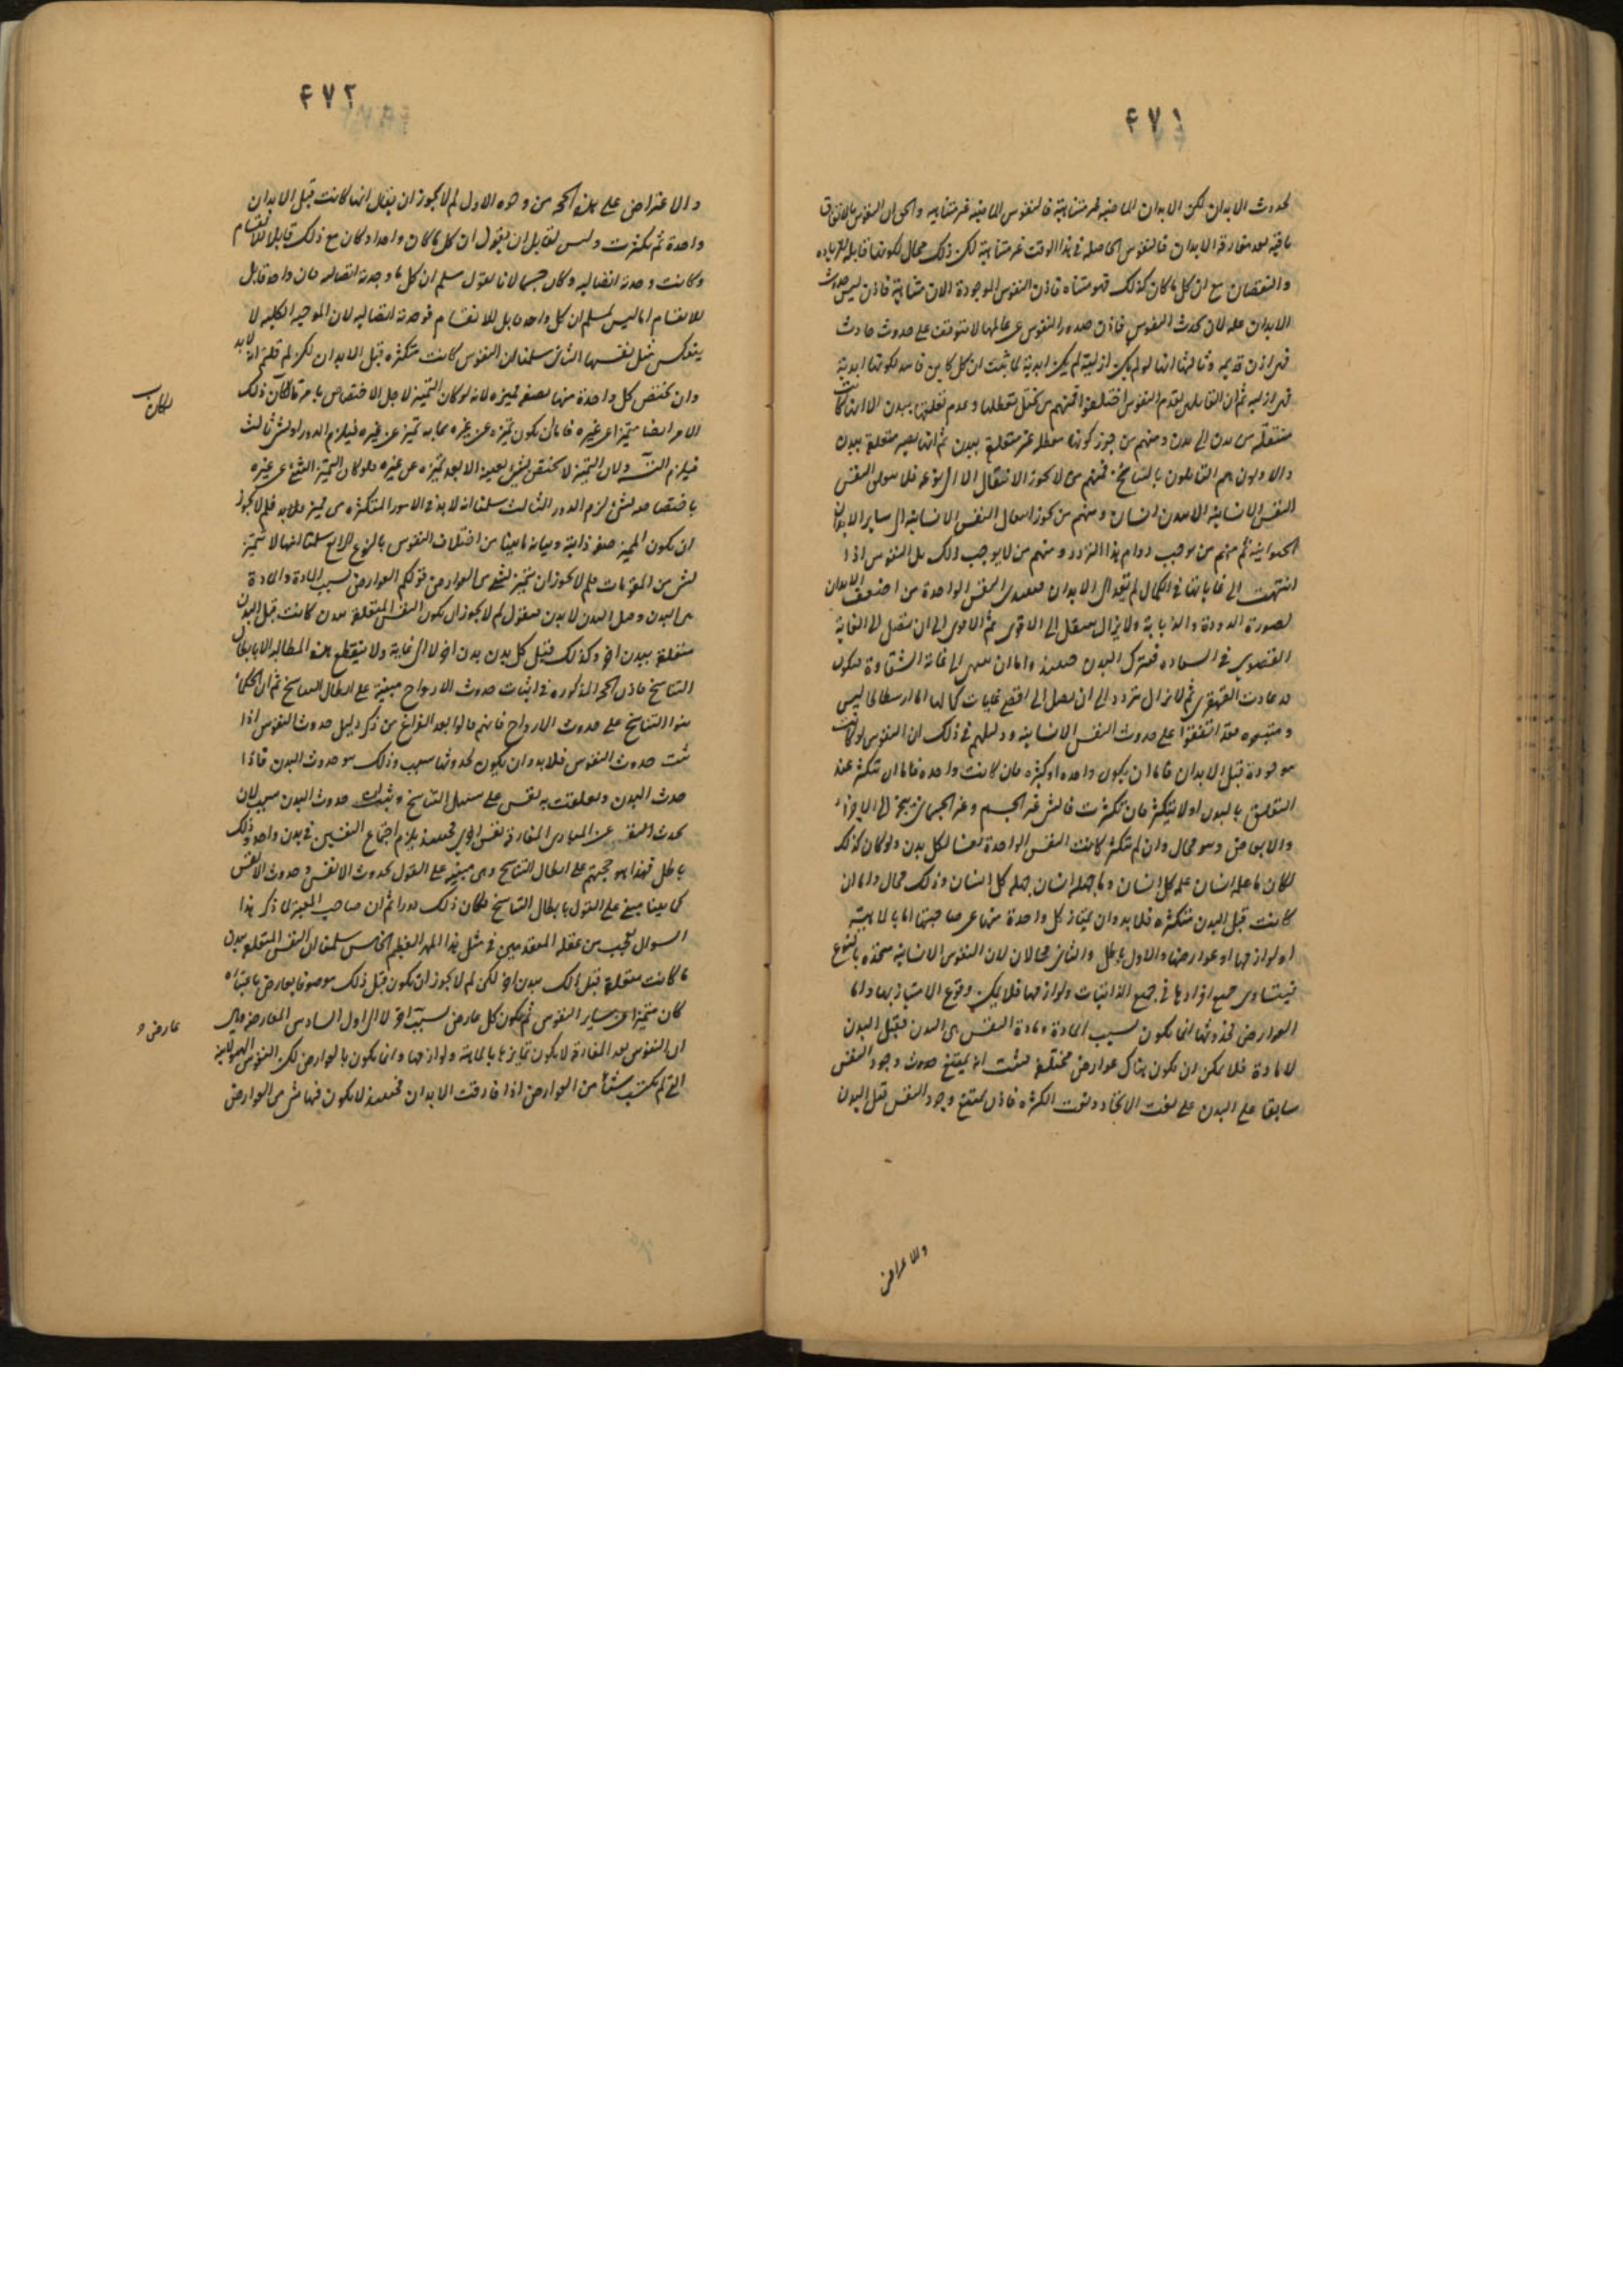 ٤٧١
لحدوث الابدان لكن الابدان الماضية غير متناهية فالنفوس الماضية غير متناهية والحق ان النفوس بالاتفاق
باقية بعد مفارقة الابدان فالنفوس الحاصلة فى هذا الوقت غير متناهية لكن ذلك محال لكونها قابلة للزيادة
والنقصان مع ان كل ما كان كذلك فهو متناه فاذن النفوس الموجودة الان متناهية فاذن ليس حدوث
الابدان علة لان تحدث النفوس فاذن صدور النفوس عن عللها لا يتوقف على حدوث حادث
فهى اذن قديمة وثالثها انها لو لم يكن ازلية لم يكن ابدية لما ثبت ان كل كاين فاسد لكونها ابدية
فهى ازلية ثم ان القايلين بقدم النفوس اختلفوا فمنهم من تعطلها وعدم تعلقها ببدن الا انها كانت
منتقلة من بدن الى بدن ومنهم من جوز كونها معطلة غير متعلقة ببدن ثم انها تصير متعلقة ببدن
والاولون هم القايلون بالتناسخ فمنهم من لا يجوز الانتقال الا الى نوعه فلا النفس
النفس الانسانية الا بدن انسان ومنهم من يجوز انتقال النفس الانسانية الى ساير الابدان
الحيوانية ثم منهم من يوجب دوام هذا التردد ومنهم من لا يوجب ذلك بل النفوس اذا
انتهت الى غاياتها فى الكمال لم تعد الى الابدان النفس الواحدة من اضعف الابدان
لصورة الدودة والذبابة ولا يزال ينتقل الى الاقوى ثم الاقوى الى ان تتصل الى الغاية
القصوى فى السعادة فتترك البدن حينئذ واما ان تنتهى الى غاية الشقاوة فيكون
قد عادت القهقرى ثم لا تزال تتردد الى ان تصل الى اقصى غايات كمالها اما ارسطاطاليس
ومتبعوه فقد اتفقوا على حدوث النفس الانسانية ودليلهم فى ذلك ان النفوس لو كانت
موجودة قبل الابدان فاما ان يكون واحدة او كثيرة فان كانت واحدة فاما ان تتكثر عند
التعلق بالبدن او لا يتكثر فان تكثرت فالشىء غير الجسم وغير الجسمانى يتجزى الى الاجزاء
والابعاض وهو محال وان لم تتكثر كانت النفس الواحدة نفسا لكل بدن ولو كان كذلك
لكان ما علمه انسان علمه كل انسان وما جهله انسان جهله كل انسان وذلك محال واما ان
كانت قبل البدن متكثرة فلا بد وان يمتاز كل واحدة منها عن صاحبتها اما بالماهية
او لوازمها او عوارضها والاول والثانى محالان لان النفوس الانسانية متحدة بالنوع
فيتساوى جميع افرادها فى جميع الذاتيات ولوازمها فلا يمكن وقوع الامتياز بها واما
العوارض فحدوثها انما يكون بسبب المادة ومادة النفس هى البدن فقبل البدن
لا مادة فلا يمكن ان يكون هناك عوارض مختلفة فثبت انه يمتنع حدوث وجود النفس
سابقا على البدن على نعت الاتحاد ونعت الكثرة فاذن يمتنع وجود النفس قبل البدن
والاعراض
٤٧٢
والاعتراض على هذه الحجة من وجوه الاول لم لا يجوز ان يقال انها كانت قبل الابدان
واحدة ثم تكثرت وليس لقايل ان يقول ان كل ما كان واحدا وكان مع ذلك قابلا للانقسام
وكانت وحدته اتصالية وكان جسما لانا نقول مسلم ان كل ما وحدته اتصالية فان واحد قابل
للانقسام اما ليس بمسلم ان كل واحد قابل للانقسام فوحدته اتصالية لان الموجبة الكلية لا
ينعكس مثل نفسها الثانى سلمنا ان النفوس كانت متكثرة قبل الابدان لكن لم قلتم انه لا بد
وان يختص كل واحدة منها بصفة مميزة لانه لو كان التميز لاجل الاختصاص بامر ما لكان ذلك
لكان
الامر ايضا متميزا عن غيره فاما ان يكون تميزه عن غيره بما به تميز عن غيره فيلزم الدور او بشىء ثالث
فيلزم التسلسل ولان التميز لا يختص بشىء بعينه الا بعد تميزه عن غيره فلو كان تميز الشىء عن غيره
باختصاصه بشىء لزم الدور الثالث سلمنا انه لا بد فى الامور المتكثرة من مميز فلم لا يجوز
ان يكون المميز صفة ذاتية وبيانه ما بينا من اختلاف النفوس بالنوع الرابع سلمنا انها لا تتميز
بشىء من المقومات فلم لا يجوز ان يتميز بشىء من العوارض قولكم العوارض بسبب المادة والمادة
هى البدن وقبل البدن لا بدن فنقول لم لا يجوز ان يكون النفس المتعلقة ببدن كانت قبل البدن
متعلقة ببدن اخر وكذلك قبل كل بدن بدن اخر لا الى نهاية ولا ينقطع هذه المطالبة الا بابطال
التناسخ فاذن الحجة المذكورة فى اثبات حدوث الارواح مبنية على ابطال التناسخ ثم ان الحكماء
بنوا التناسخ على حدوث الارواح فانهم قالوا بعد الفراغ من ذكر دليل حدوث النفوس اذا
ثبت حدوث النفوس فلا بد وان يكون لحدوثها سبب وذلك هو حدوث البدن فاذا
حدث البدن وتعلقت به نفس على سبيل التناسخ وثبت ان حدوث البدن سبب لان
تحدث النفس عن المبادى المفارقة نفس اخرى فحينئذ يلزم اجتماع النفسين فى بدن واحد وذلك
باطل فهذا هو حجتهم على ابطال التناسخ وهى مبنية على القول بحدوث الانفس وحدوث الانفس
كما بينا مبنى على القول بابطال التناسخ فكان ذلك دورا ثم ان صاحب المعتبر لما ذكر هذا
السوال تعجب من غفلة المتقدمين فى مثل هذا المهم العظيم الخامس سلمنا ان النفس المتعلقة ببدن
ما كانت متعلقة قبل ذلك ببدن اخر لكن لم لا يجوز ان يكون قبل ذلك موصوفا بعارض باعتباره
كان متميزا عن ساير النفوس ثم يكون كل عارض بسبب اخر لا الى اول السادس المعارضة وهى
عارض و
ان النفوس بعد المفارقة لا يكون تمايزها بالماهية ولوازمها وانما يكون بالعوارض لكن النفوس الهيولانية
التى لم تكتسب شيئا من العوارض اذا فارقت الابدان فحينئذ لا يكون فيها شىء من العوارض